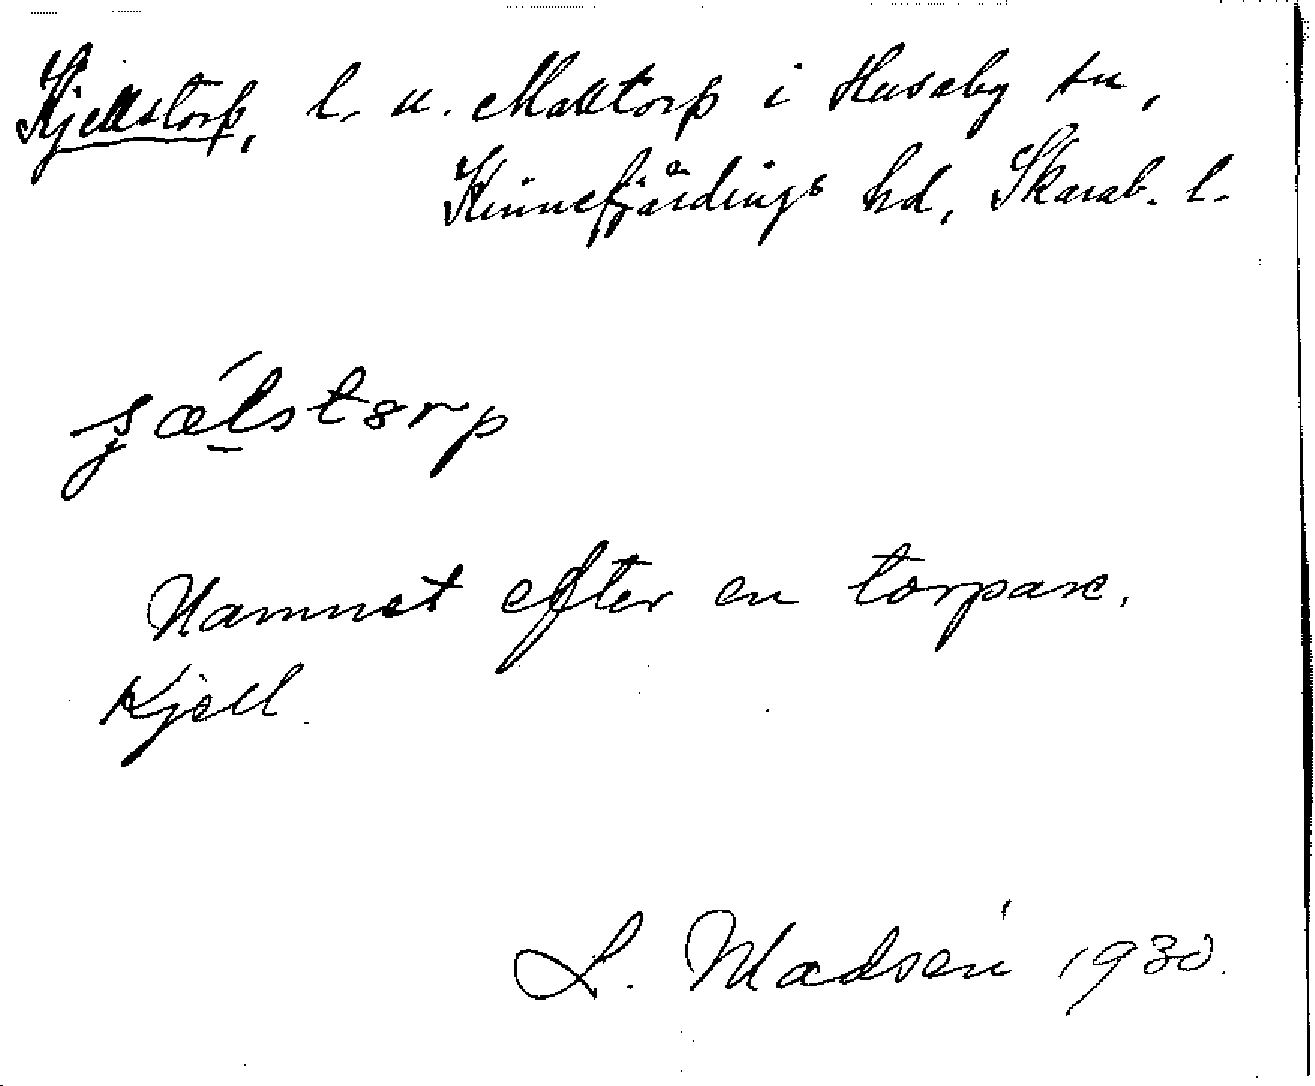 Kjellstorp, l. u. Malltorp i Husaby sn,
Kinnefjärdings hd, Skarab. l.
Namnet efter en torpare.
Kjell.
L. Madsén 1930.